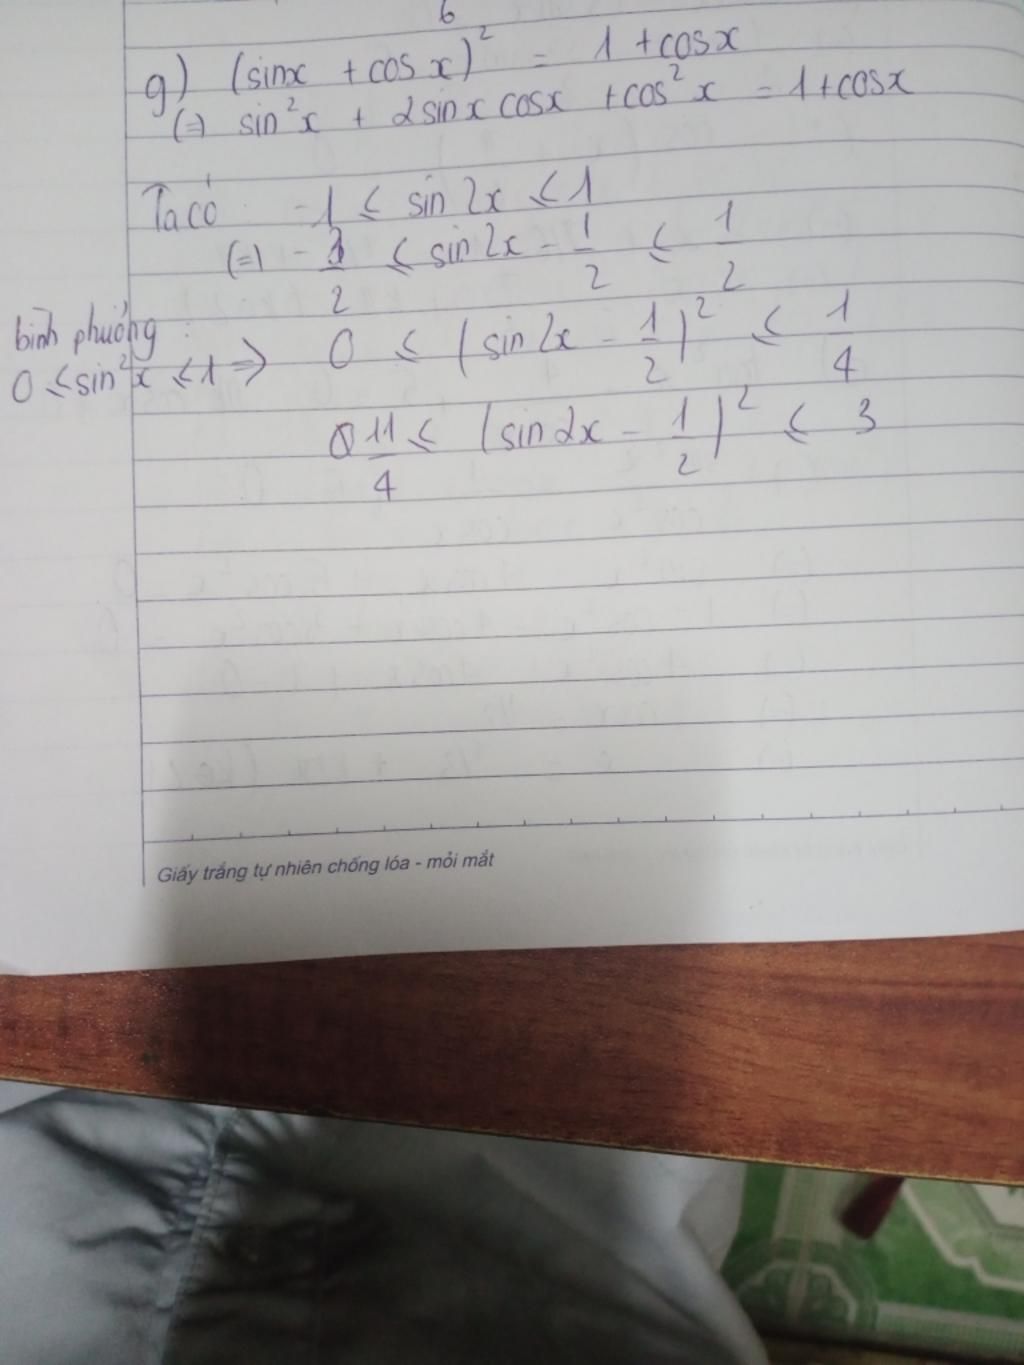 6
g) (sinx + cosx)² = 1 + cosx
(=) sin²x + 2sinxcosx + cos²x = 1 + cosx
Ta có -1 ≤ sin 2x ≤ 1
(=) - 3/2 ≤ sin 2x - 1/2 ≤ 1/2
bình phương :
0 ≤ sin²x ≤ 1 => 0 ≤ (sin 2x - 1/2)² ≤ 1/4
11/4 ≤ (sin 2x - 1/2)² ≤ 3
Giấy trắng tự nhiên chống lóa - mỏi mắt